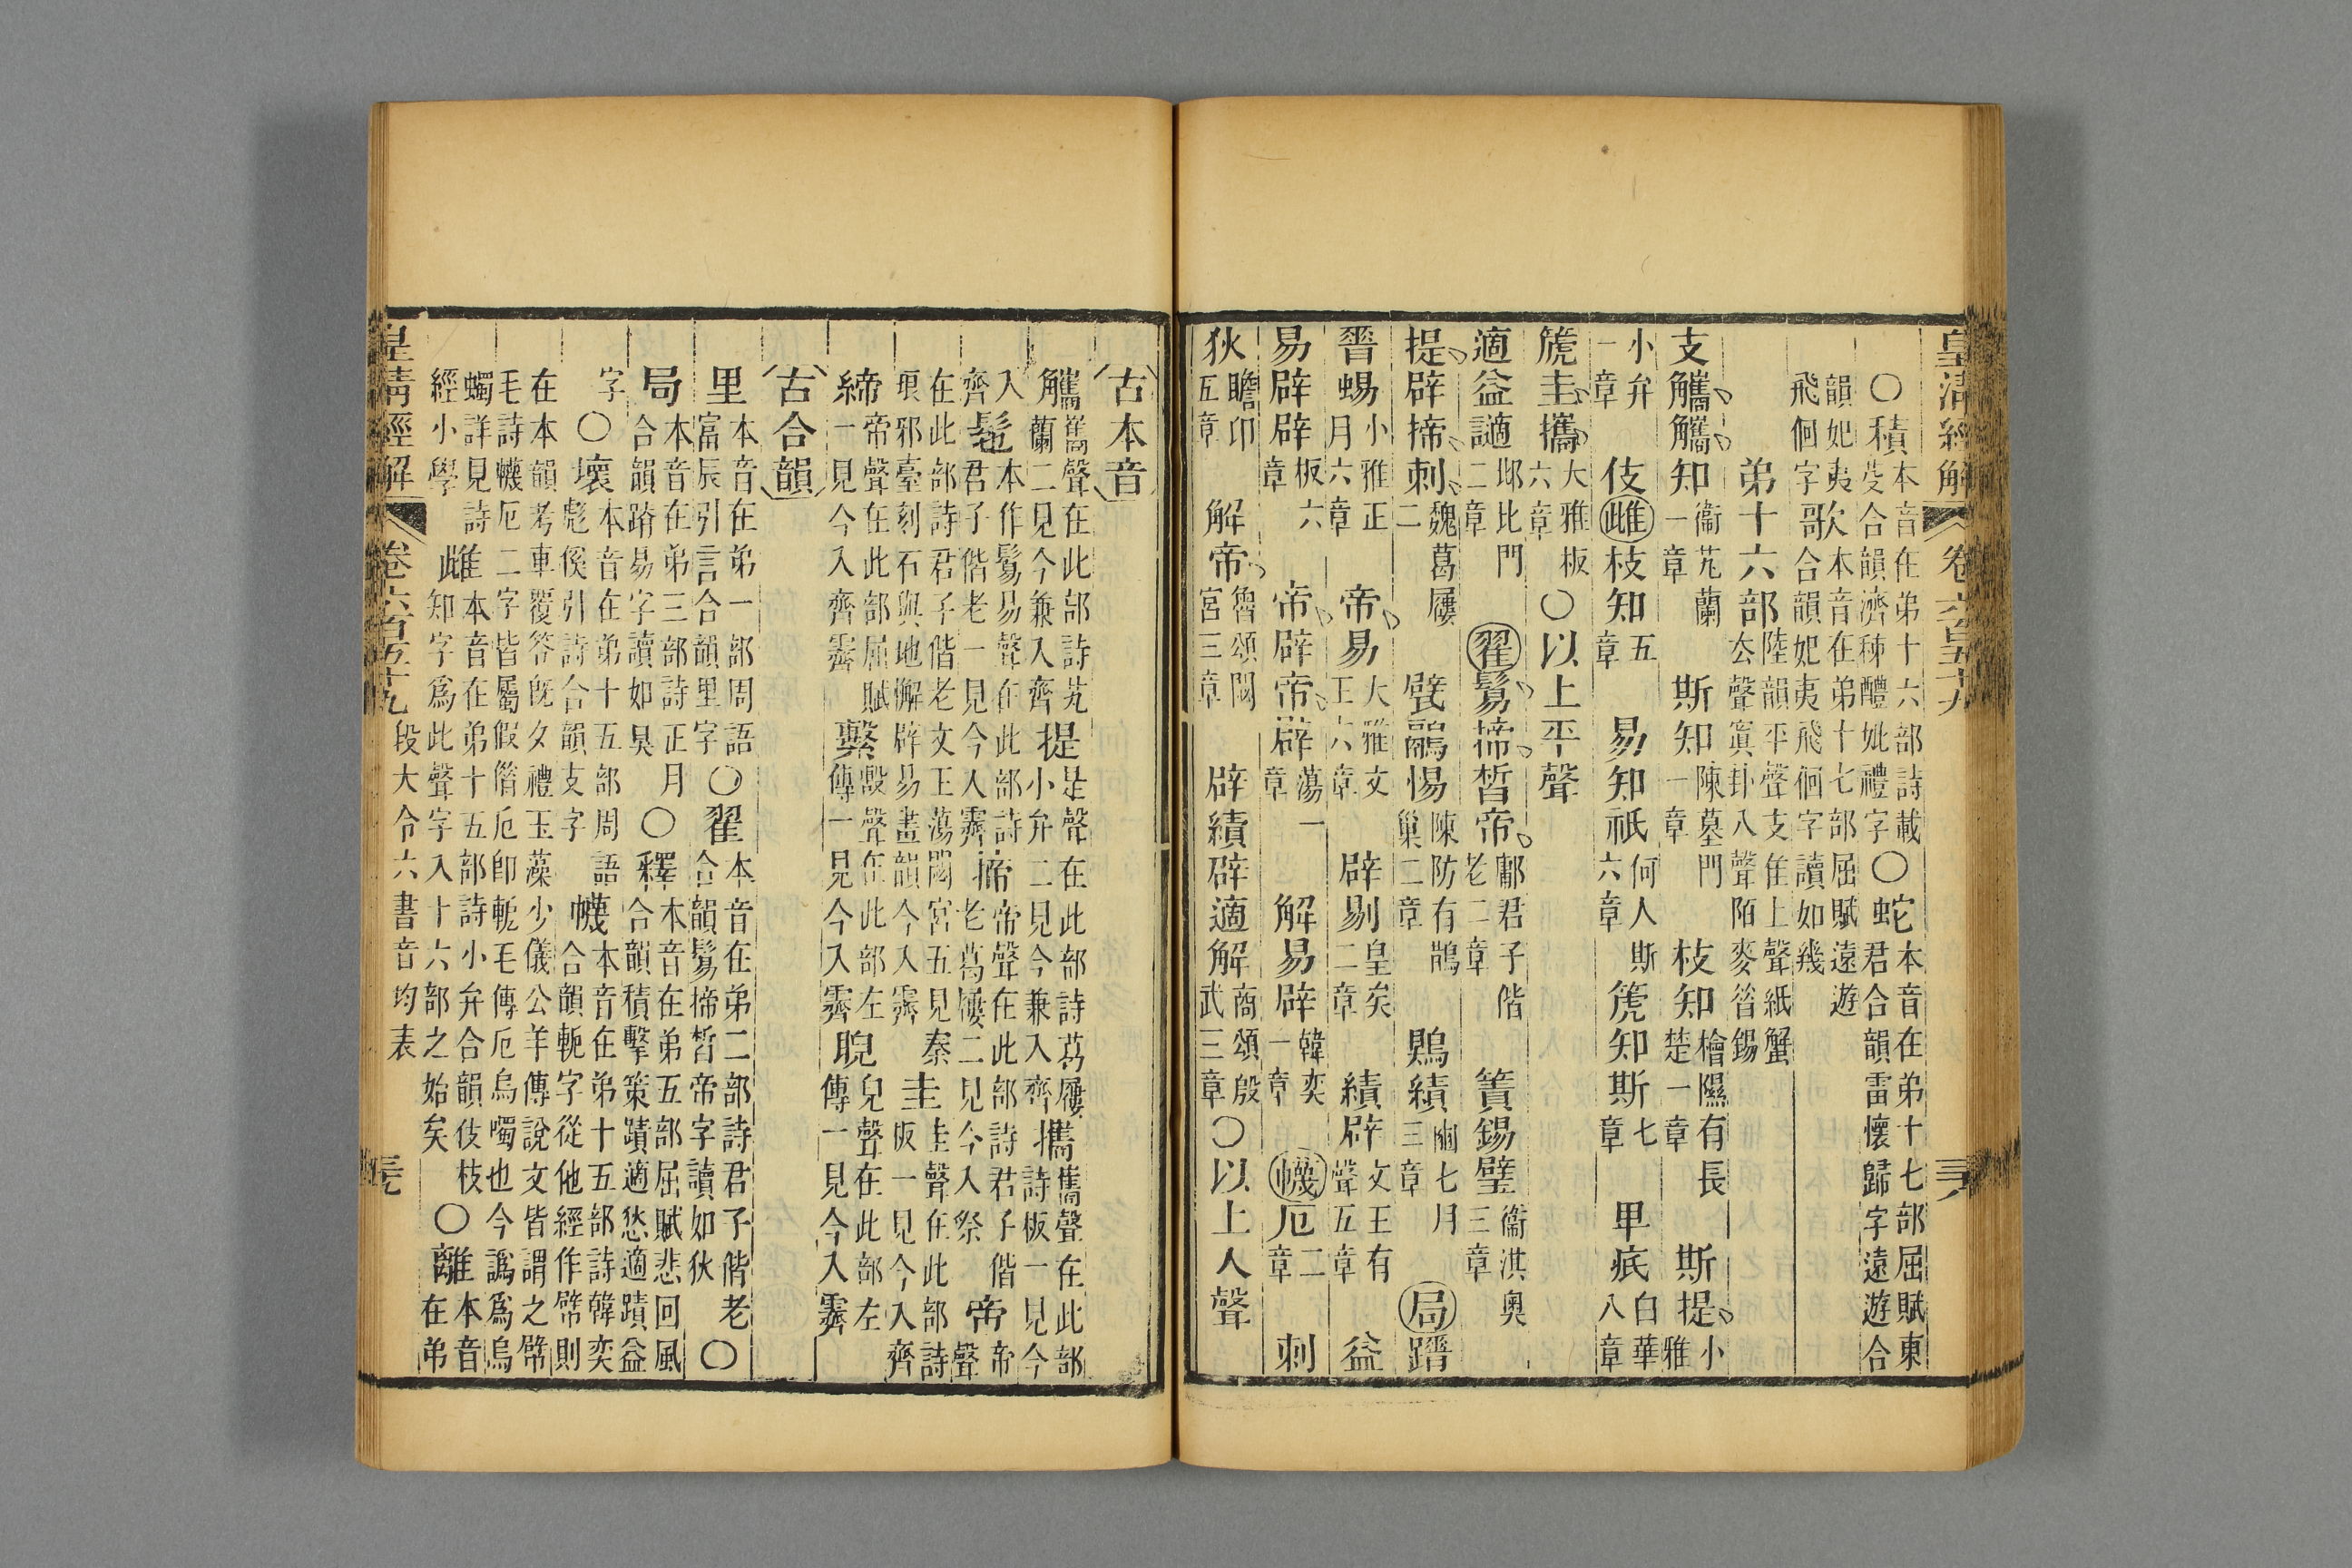 皇清經解 卷六百五十九
○積本音在弟十六部詩載芟合韻濟秭醴妣禮字○蛇本音在弟十七部屈賦東君合韻雷懷歸字遠遊合
韻妃夷歌本音在弟十七部屈賦遠遊飛佪字合韻妃夷飛佪字讀如幾
弟十六部陸韻平聲支佳上聲紙蟹去聲寘卦入聲陌麥昔錫
支觿觿知衞芄蘭一章 斯知陳墓門一章 枝知檜隰有長楚一章 斯提小雅
小弁一章 伎雌枝知五章 易知祇何人斯六章 篪知斯七章 卑疧白華八章
篪圭攜大雅板六章○以上平聲
適益讁邶北門二章 翟鬄揥晳帝鄘君子偕老二章 簀錫璧衞淇奧三章
提辟揥刺魏葛屨二 甓鷊惕陳防有鵲巢二章 鶪績豳七月三章 局蹐
脊蜴小雅正月六章 帝易大雅文王六章 辟剔皇矣二章 績辟文王有聲五章 益
易辟辟板六章 帝辟帝辟蕩一章 解易辟韓奕一章 幭厄二章 刺
狄瞻卬五章 解帝魯頌閟宮三章 辟績辟適解商頌殷武三章○以上入聲
古本音
觿巂聲在此部詩芄蘭二見今兼入齊 提是聲在此部詩葛屨小弁二見今兼入齊 攜巂聲在此部詩板一見今
入齊 髢本作鬄易聲在此部詩君子偕老一見今入霽 揥帝聲在此部詩君子偕老葛屨二見今入祭 帝帝聲
在此部詩君子偕老文王蕩閟宮五見秦琅邪臺刻石與地懈辟易畫韻今入霽 圭圭聲在此部詩板一見今入齊
締帝聲在此部屈賦一見今入齊霽 繫毄聲在此部左傳一見今入霽 睨兒聲在此部左傳一見今入霽
古合韻
里本音在弟一部周語富辰引言合韻里字○翟本音在弟二部詩君子偕老合韻鬄揥晳帝字讀如狄○
局本音在弟三部詩正月合韻蹐易字讀如狊○釋本音在弟五部屈賦悲回風合韻積擊策蹟適愁適蹟益
字○壞本音在弟十五部周語彪傒引詩合韻支字 幭本音在弟十五部詩韓奕合韻軶字從他經作幦則
在本韻考車覆笭旣夕禮玉藻少儀公羊傳說文皆謂之幦毛詩幭厄二字皆屬假借厄卽軶毛傳厄烏噣也今譌爲烏
蠋詳見詩經小學 雌本音在弟十五部詩小弁合韻伎枝知字爲此聲字入十六部之始矣○離本音在弟
皇清經解 卷六百五十九 段大令六書音均表